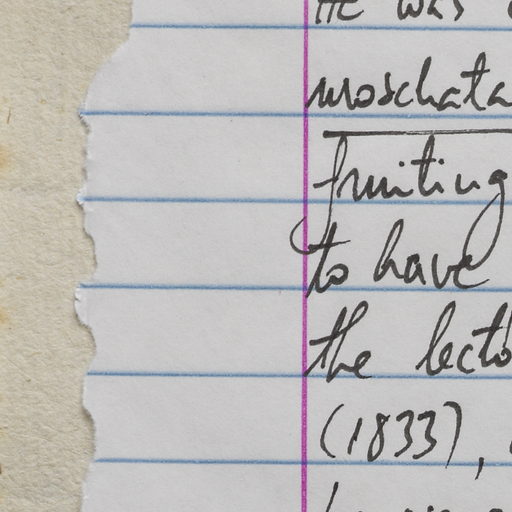 He was
moschata
fruiting
to have
the lecto
(1833),